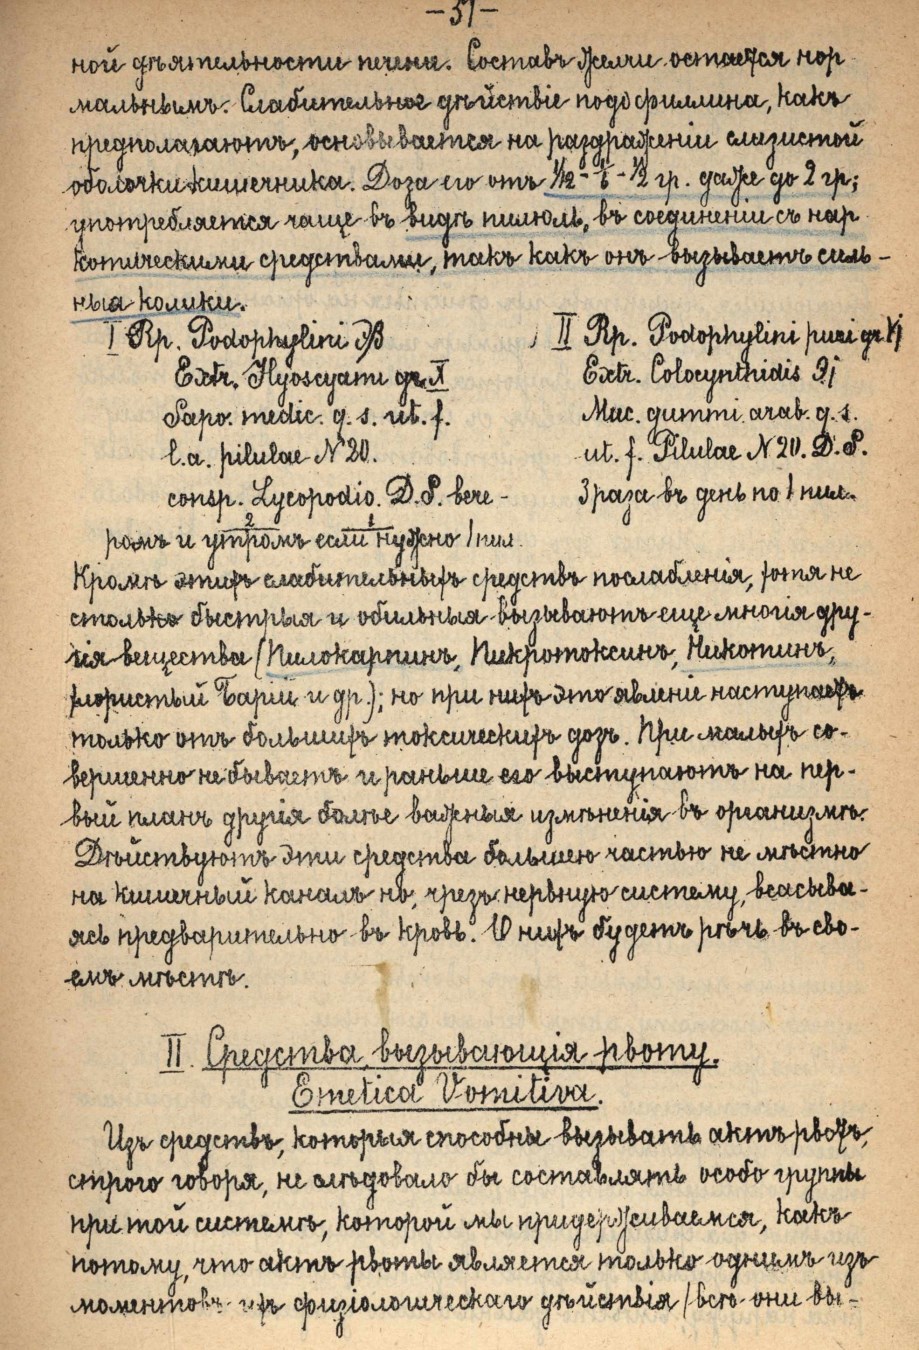 -51-
ной дѣятельности печени. Составъ желчи остается нор
мальнымъ. Слабительное дѣйствіе подофиллина, какъ
предполагаютъ, основывается на раздраженіи слизистой
оболочки кишечника. Доза его отъ 1/12 - 1/6 - 1/2 гр. даже до 2 гр;
употребляется чаще въ видѣ пилюль, въ соединеніи съ нар
котическими средствами, такъ какъ онъ вызываетъ силь-
ныя колики.
I Rp. Podophylini ℈β
Extr. Hyoscyami gr. X
Sapo. medic. q. s. ut. f.
l. a. pilulae N 20.
consp. Lycopodio. D. S. вече-
ромъ и утромъ если нужно 1 пил.
II Rp. Podophylini puri gr. Vj
Extr. Colocynthidis ℈j
Muc. gummi arab. q. s.
ut. f. Pilulae N 20. D. S.
3 раза въ день по 1 пил.
Кромѣ этихъ слабительныхъ средствъ послабленія, хотя не
столько быстрыя и обильныя вызываютъ еще многія дру-
гія вещества (Пилокарпинъ, Пикротоксинъ, Никотинъ,
хлористый Барій и др.); но при нихъ это явленіе наступаетъ
только отъ большихъ токсическихъ дозъ. При малыхъ со-
вершенно не бываетъ и раньше его выступаютъ на пер-
вый планъ другія болѣе важныя измѣненія въ организмѣ.
Дѣйствуютъ эти средства большею частью не мѣстно
на кишечный каналъ но, чрезъ нервную систему, всасыва-
ясь предварительно въ кровь. О нихъ будетъ рѣчь въ сво-
емъ мѣстѣ.
II. Средства, вызывающія рвоту.
Emetica Vomitiva.
Изъ средствъ, которыя способны вызывать актъ рвоты,
строго говоря, не слѣдовало бы составлять особо группы
при той системѣ, которой мы придерживаемся, какъ
потому, что актъ рвоты является только однимъ изъ
моментовъ ихъ физіологическаго дѣйствія, всѣ они вы-